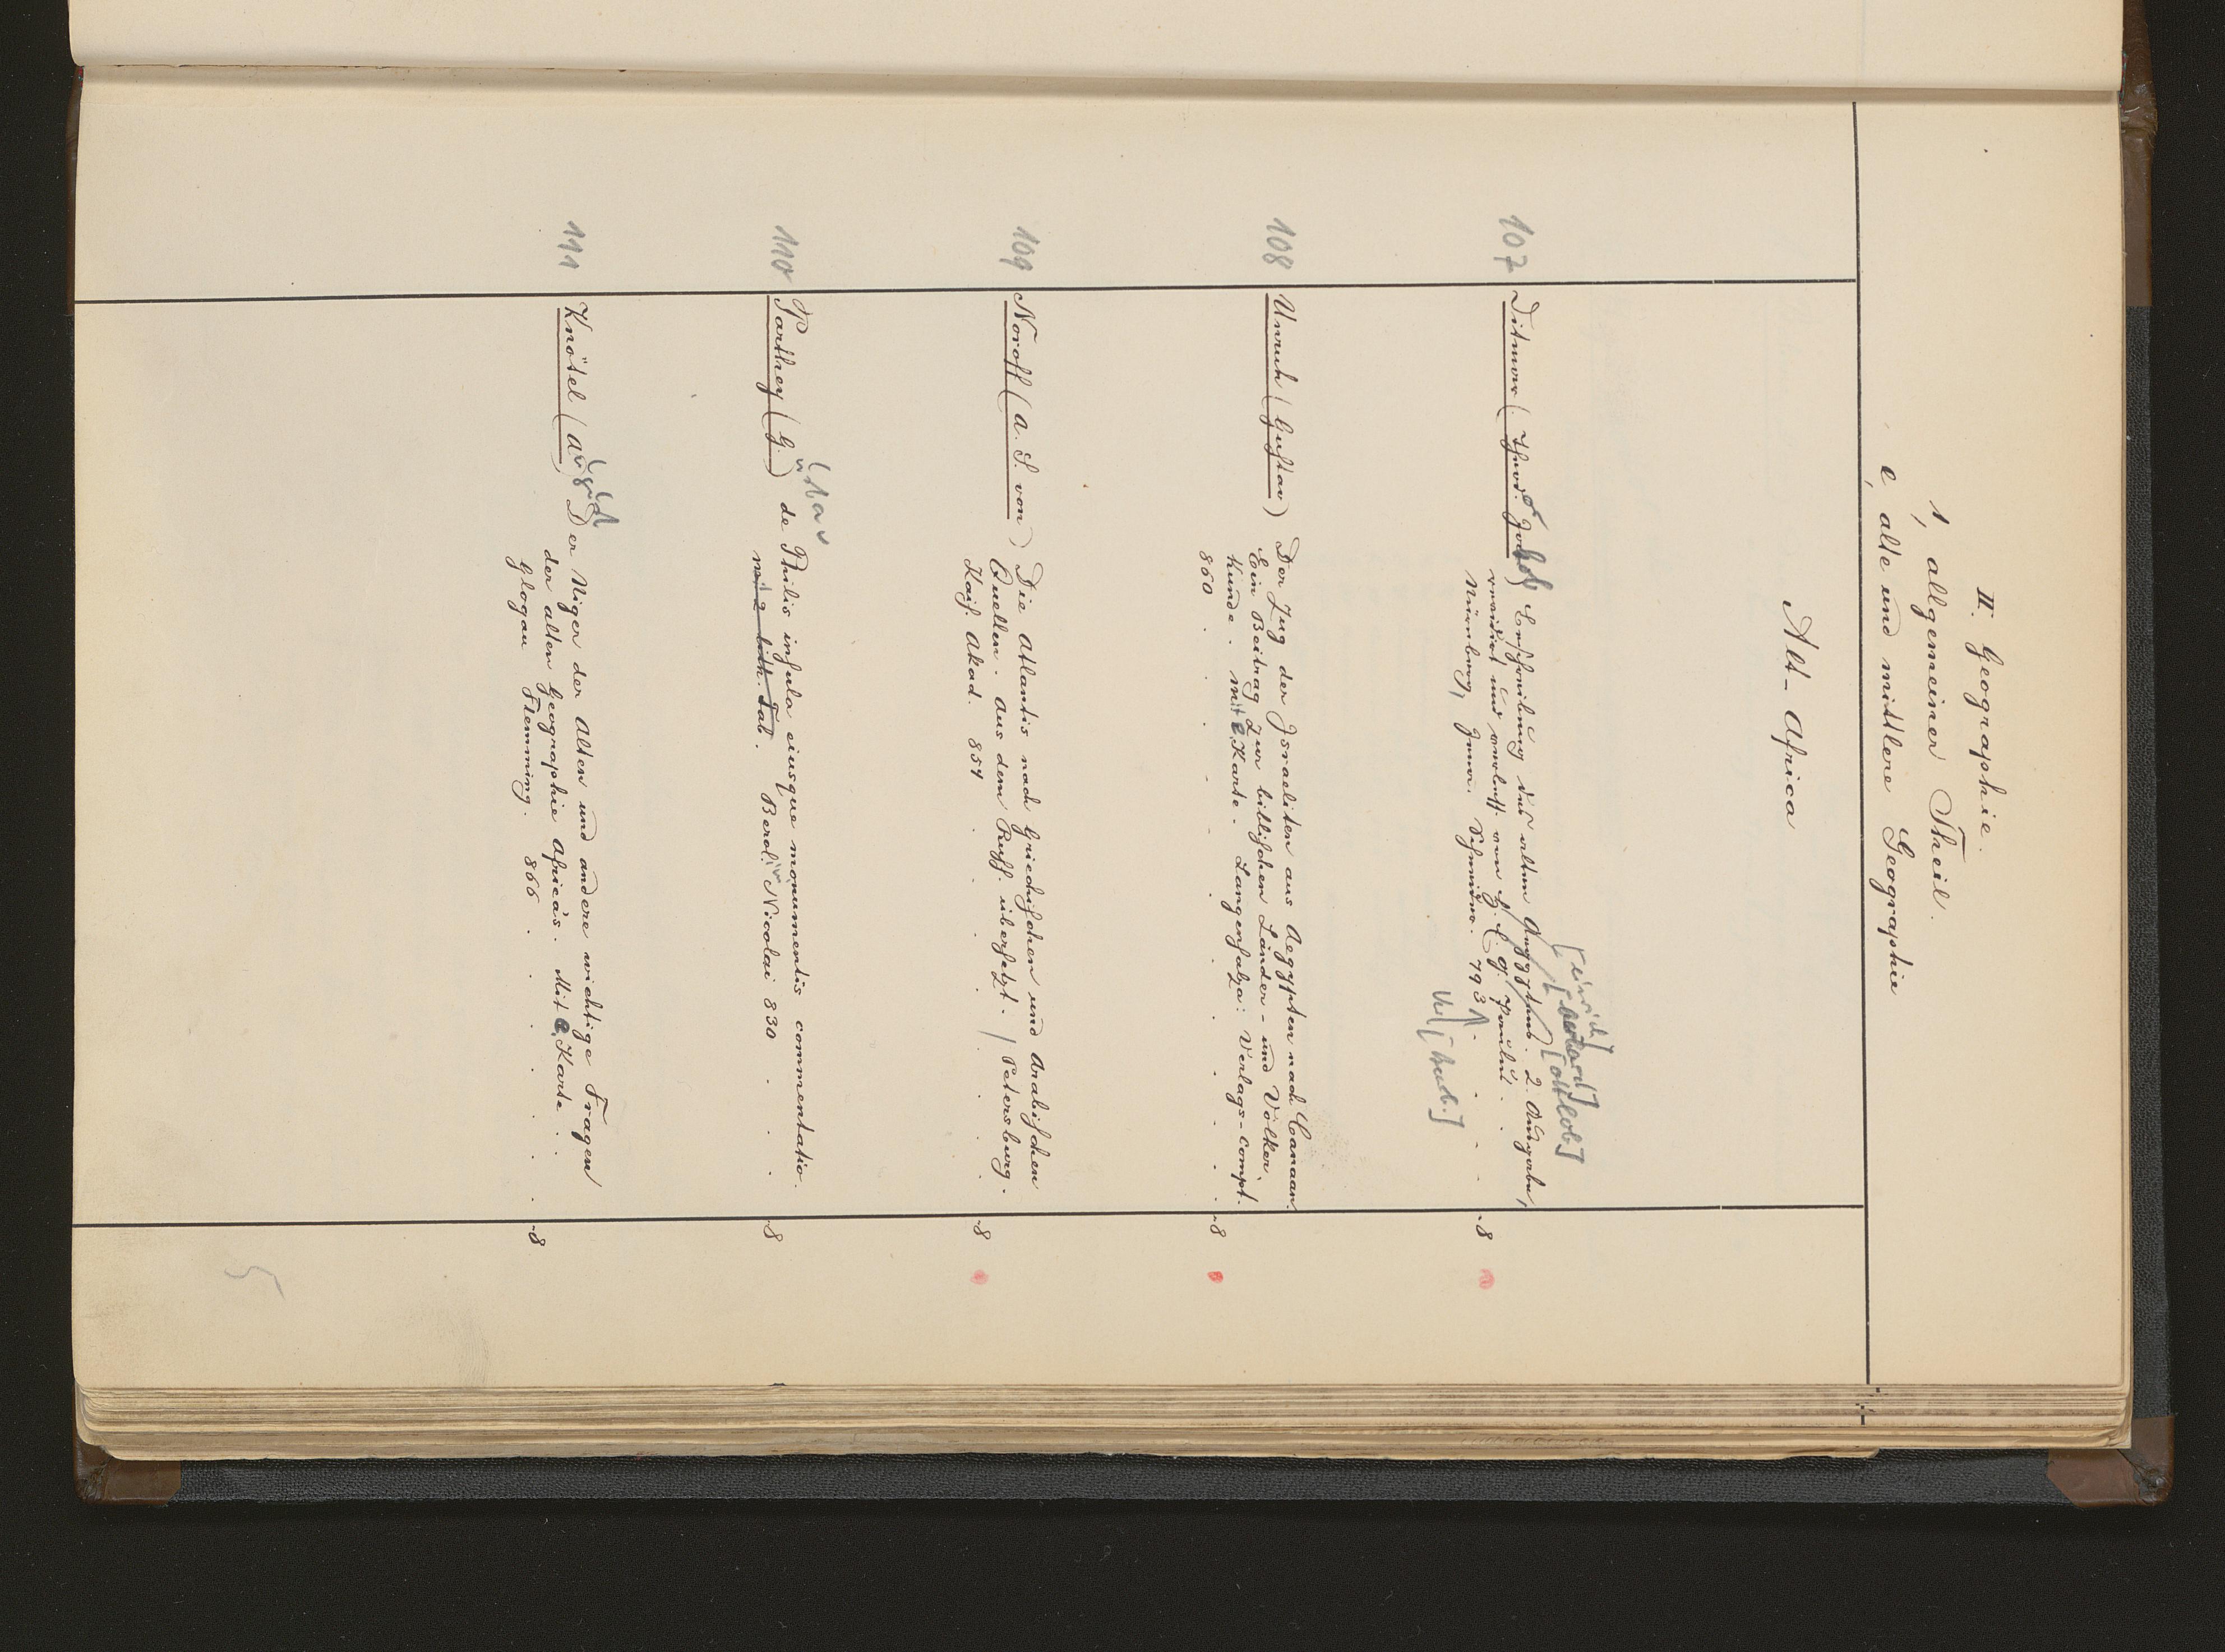 II. Geographie.
1, allgemeiner Theil.
e, alte und mittlere Geographie
Alt-Africa
107 Ditmar (Theod. Jakob) Beschreibung des alten Aegyptens. 2. Ausgabe,
revidirt und verbess. von H. E. G. Paulus.
Nürnberg, Schneider. 793 . . . . 8
108 Unruh (Gustav) Der Zug der Israeliten aus Aegypten nach Canaan.
Ein Beitrag zur biblischen Länder- und Völker-
kunde. Mit e. Karte. Langensalza: Verlags-Compt.
860 . . . . . . . . 8
109 Noroff (A. S. von) Die Atlantis nach Griechischen und Arabischen
Quellen. Aus dem Russ. übersetzt. / Petersburg.
Kais. Akad. 854 . . . . . 8
110 Parthey (G.) de Philis insula eiusque monumentis commentatio.
mit 2 lith. Tab. Berol. Nicolai 830 . . . 8
(ustav
111 Knötel (August) Der Niger der Alten und andere wichtige Fragen
der alten Geographie Africa's. Mit e. Karte . .
Glogau Flemming. 866 . . . . . . 8
5